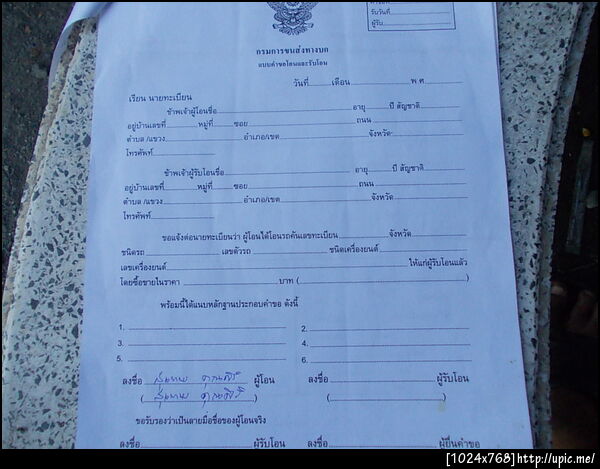 รับวันที่
ผู้รับ
กรมการขนส่งทางบก
แบบคำขอโอนและรับโอน
วันที่ เดือน พ.ศ.
เรียน นายทะเบียน
ข้าพเจ้าผู้โอนชื่อ อายุ ปี สัญชาติ
อยู่บ้านเลขที่ หมู่ที่ ซอย ถนน
ตำบล/แขวง อำเภอ/เขต จังหวัด
โทรศัพท์
ข้าพเจ้าผู้รับโอนชื่อ อายุ ปี สัญชาติ
อยู่บ้านเลขที่ หมู่ที่ ซอย ถนน
ตำบล/แขวง อำเภอ/เขต จังหวัด
โทรศัพท์
ขอแจ้งต่อนายทะเบียนว่า ผู้โอนได้โอนรถคันเลขทะเบียน จังหวัด
ชนิดรถ เลขตัวรถ ชนิดเครื่องยนต์
เลขเครื่องยนต์ ให้แก่ผู้รับโอนแล้ว
โดยซื้อขายในราคา บาท ( )
พร้อมนี้ได้แนบหลักฐานประกอบคำขอ ดังนี้
1. 2.
3. 4.
5. 6.
ลงชื่อ ผู้โอน ลงชื่อ ผู้รับโอน
( ) ( )
ขอรับรองว่าเป็นลายมือชื่อของผู้โอนจริง
ลงชื่อ ผู้รับโอน ลงชื่อ ผู้ยื่นคำขอ
[1024x768]http://upic.me/